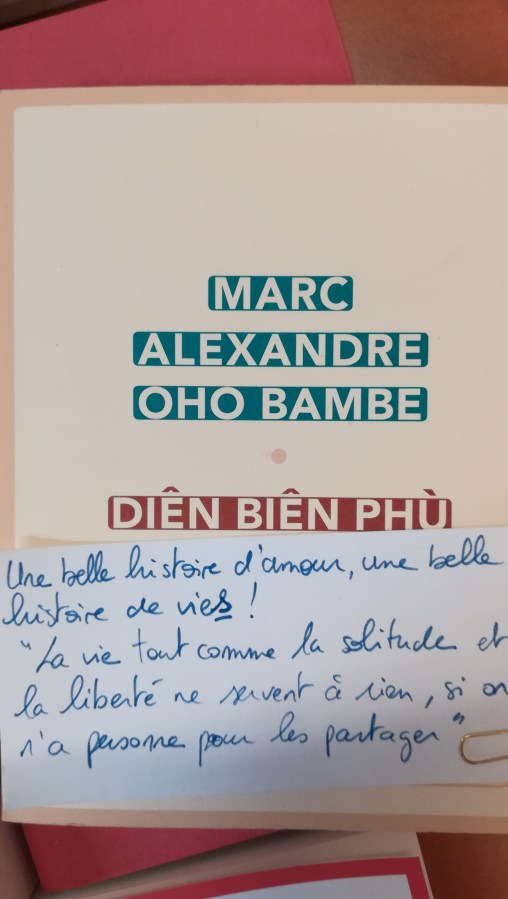 MARC
ALEXANDRE
OHO BAMBE
DIÊN BIÊN PHÙ
Une belle histoire d'amour, une belle
histoire de vies !
"La vie tout comme la solitude et
la liberté ne servent à rien, si on
n'a personne pour les partager"